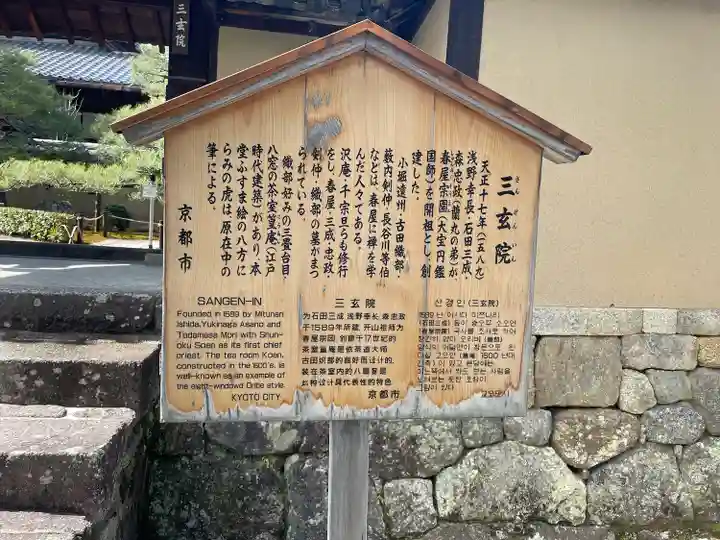 三玄院
三玄院
さんげんいん
天正十七年(一五八九)
浅野幸長・石田三成・
森忠政(蘭丸の弟)が、
春屋宗園(大宝円鑑
国師)を開祖とし、創
建した。
小堀遠州・古田織部・
薮内剣仲・長谷川等伯
などは、春屋に禅を学
んだ人々である。
沢庵、千宗旦らも修行
をし、春屋・三成・忠政・
剣仲・織部の墓がまつ
られている。
織部好みの三畳台目、
八窓の茶室篁庵(江戸
時代建築)があり、本
堂ふすま絵の八方に
らみの虎は、原在中の
筆による。
京都市
SANGEN-IN
Founded in 1589 by Mitunari
Ishida,Yukinaga Asano and
Tadamasa Mori with Shun-
oku Soen as its first chief
priest. The tea room Koan,
constructed in the 1600's, is
well-known as an example of
the eight-windowed Oribe style.
KYOTO CITY
三玄院
为石田三成 浅野幸长、森忠政
于1589年所建,开山祖师为
春屋宗园,创建于17世纪的
茶室篁庵是依茶道大师
古田织部的喜好而设计的,
装在茶室内的八扇窗是
此构设计具代表性的特色
京都市
산겡인(三玄院)
1589년
교오또시